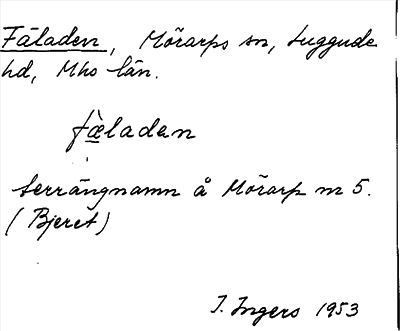 Fäladen, Mörarps sn, Luggude
hd, Mhs län.
fæ̀ladan
terrängnamn å Mörarp nr 5.
(Bjeret)
I. Ingers 1953